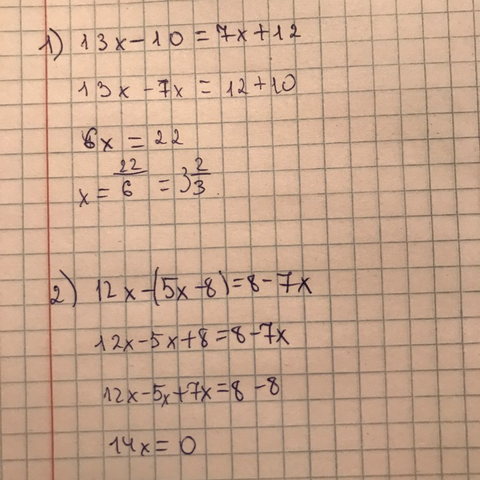 1) 13x-10=7x+12
13x-7x=12+10
6x=22
x=22/6=3 2/3
2) 12x-(5x-8)=8-7x
12x-5x+8=8-7x
12x-5x+7x=8-8
14x=0